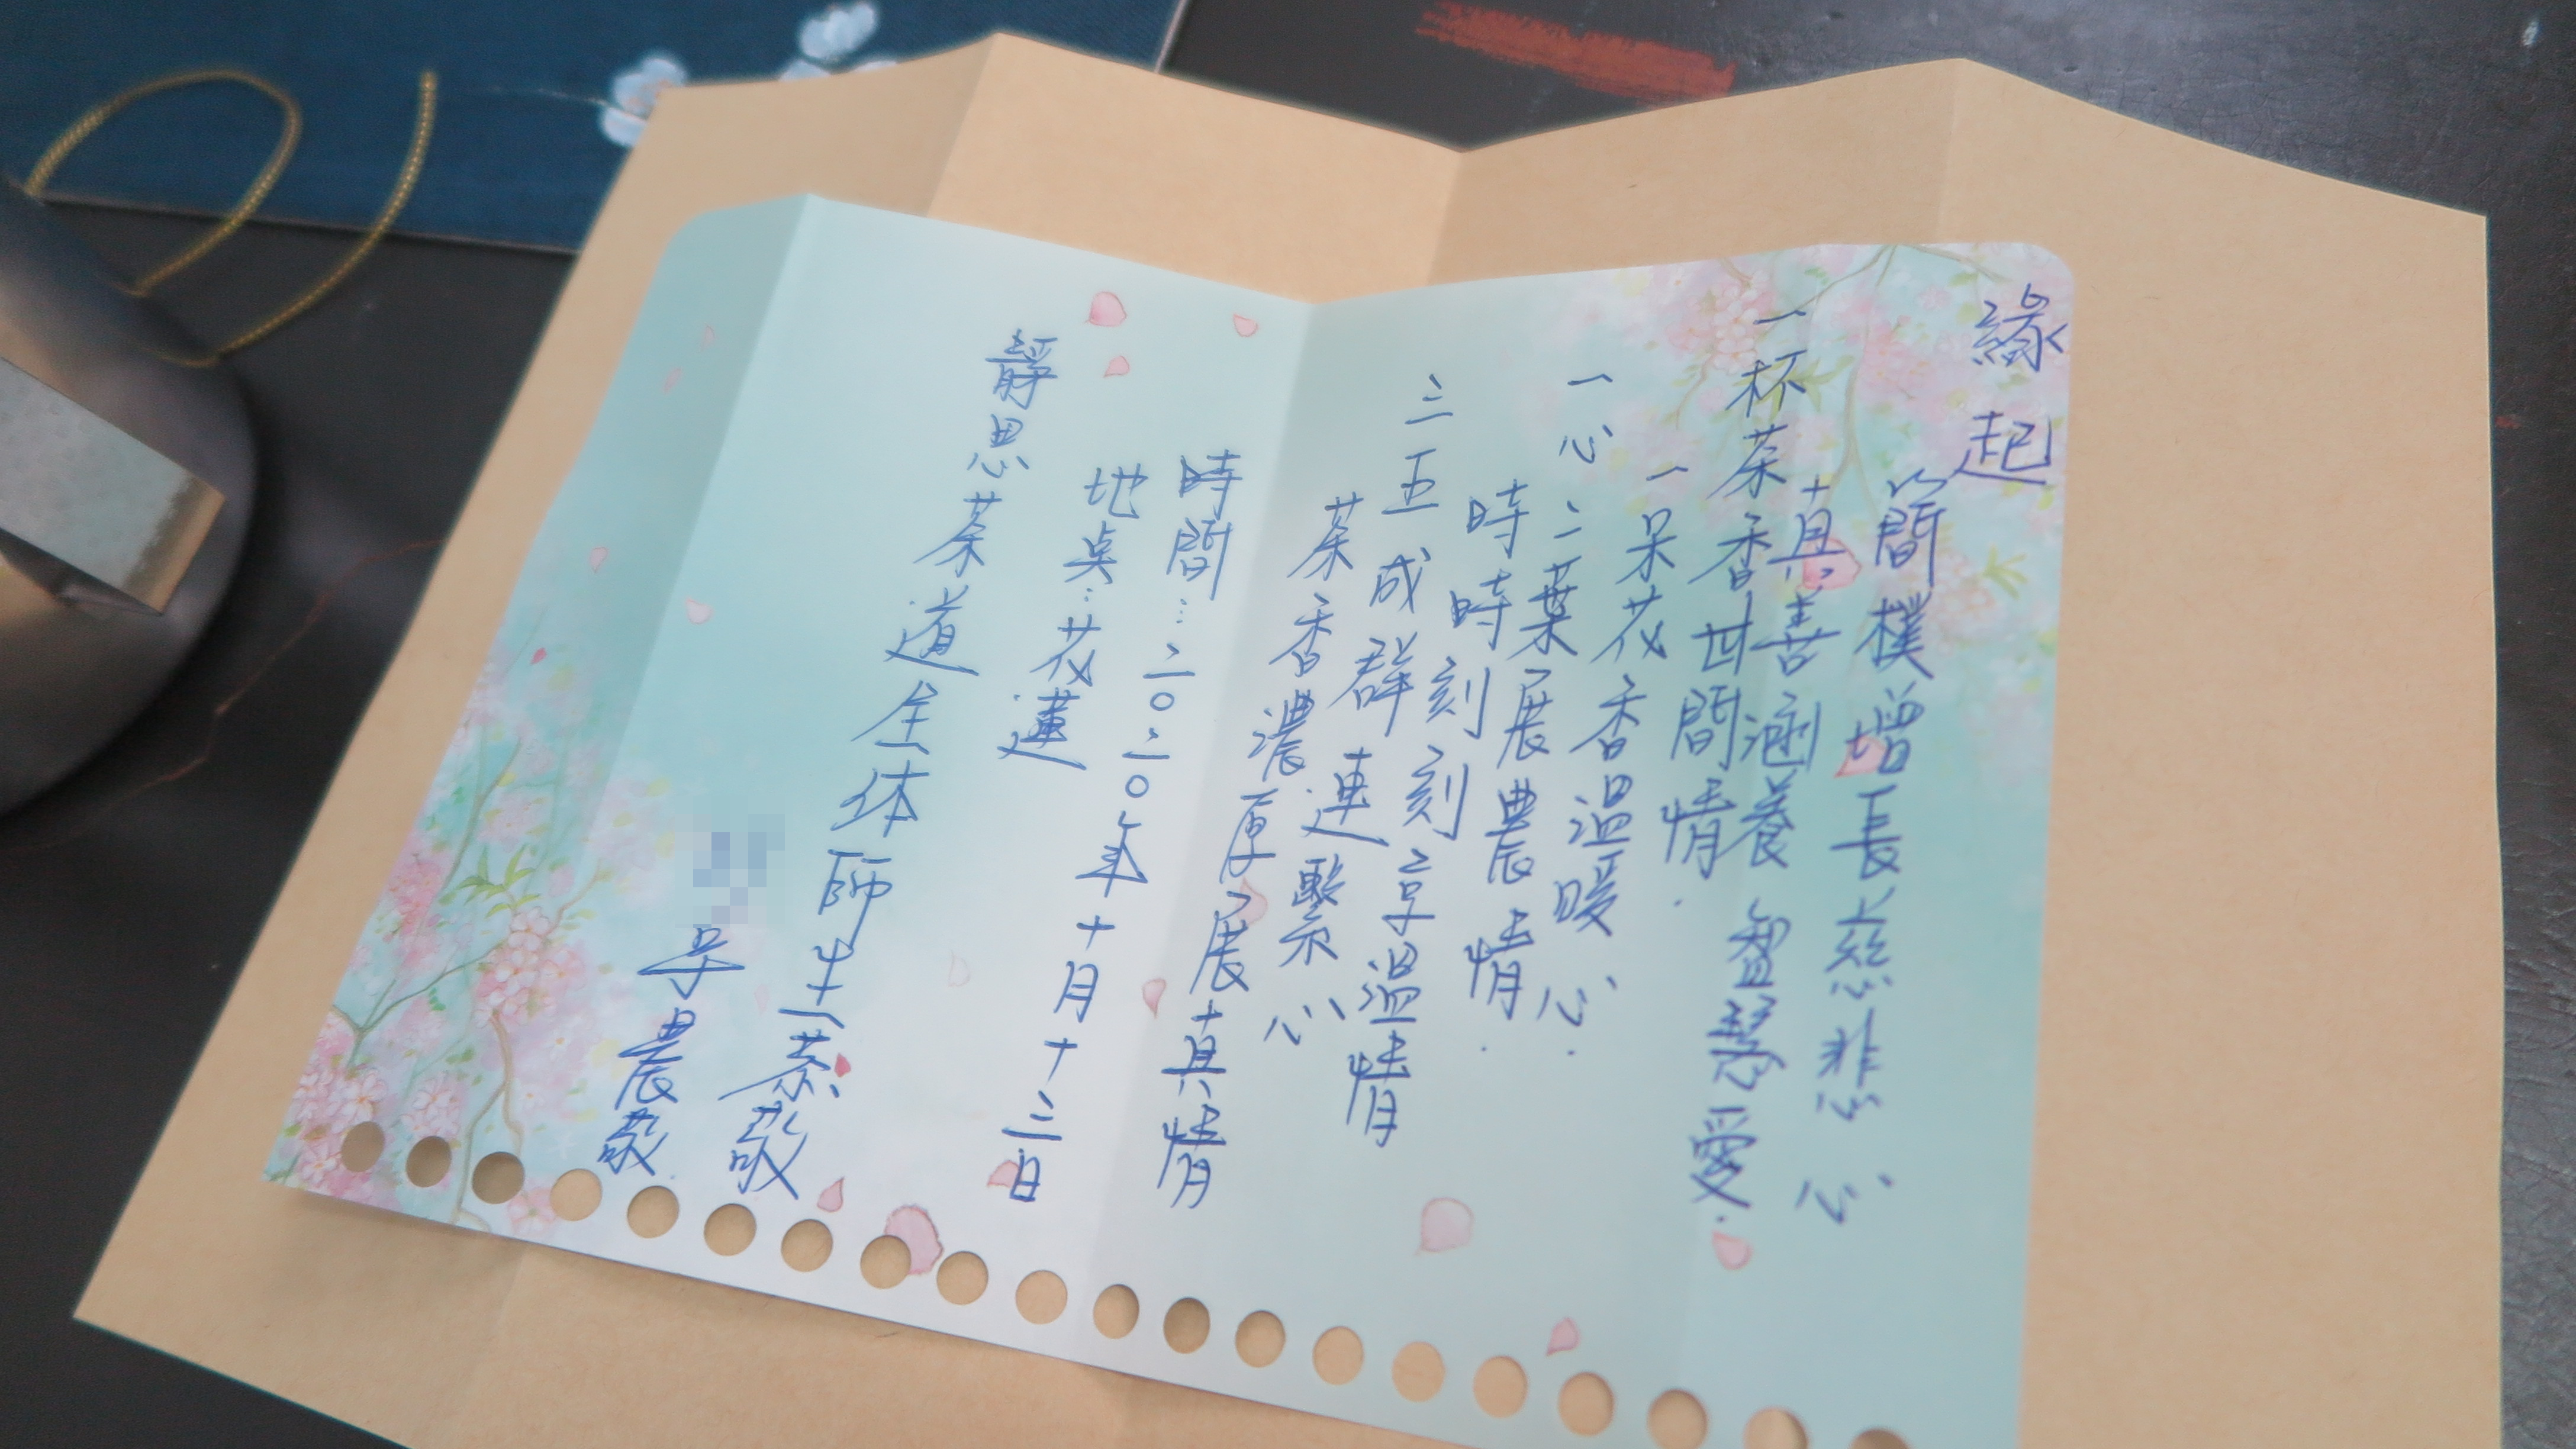 緣起
簡樸增長慈悲心
真善涵養智慧愛.
一杯茶香世間情.
一朵花香溫暖心.
一心二葉展農情.
時時刻刻享溫情
三五成群連繫心
茶香濃厚展真情
時間:二〇二〇年十月十三日
地點:花蓮
靜思茶道全体師生恭敬
農敬.